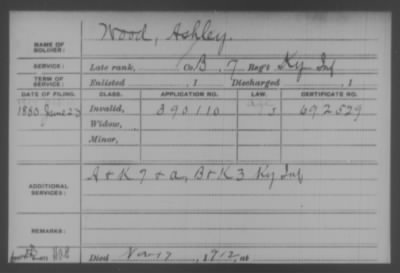 Wood, Ashley.
NAME OF SOLDIER:
SERVICE: Late rank, Co. B, 7 Reg't Ky Inf
TERM OF SERVICE: Enlisted , 1 Discharged , 1
DATE OF FILING. CLASS. APPLICATION NO. LAW. CERTIFICATE NO.
1880 June 23 Invalid, 390110 692529
Widow,
Minor,
ADDITIONAL SERVICES: A & K 7 & a, B & K 3 Ky Inf
REMARKS:
Died Nov 17, 1912, at